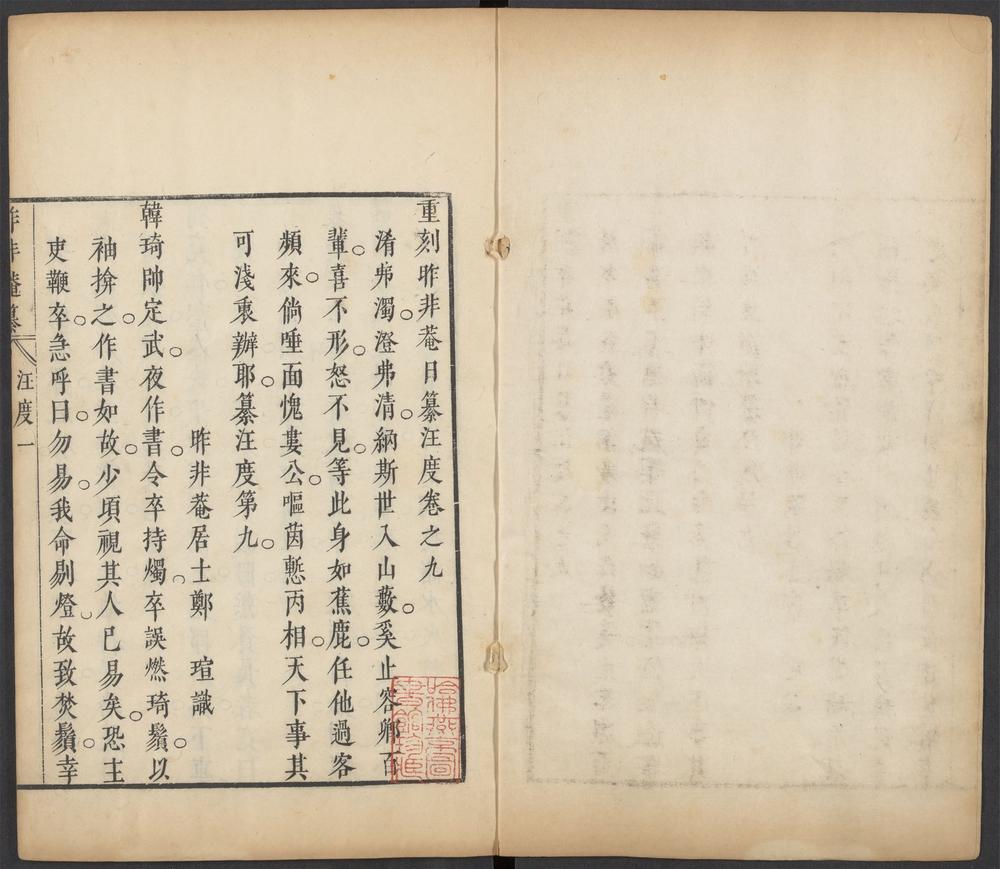 重刻昨非菴日纂汪度卷之九
淆弗濁澄弗清納斯世入山藪奚止容卿百
輩喜不形怒不見等此身如蕉鹿任他過客
頻來倘唾面愧婁公嘔茵慙丙相天下事其
可淺衷辦耶纂汪度第九
昨非菴居士鄭 瑄識
韓琦帥定武夜作書令卒持燭卒誤燃琦鬚以
袖揜之作書如故少頃視其人已易矣恐主
吏鞭卒急呼曰勿易我命剔燈故致焚鬚幸
昨非菴纂 汪度 一
哈佛燕京圖書館珍藏